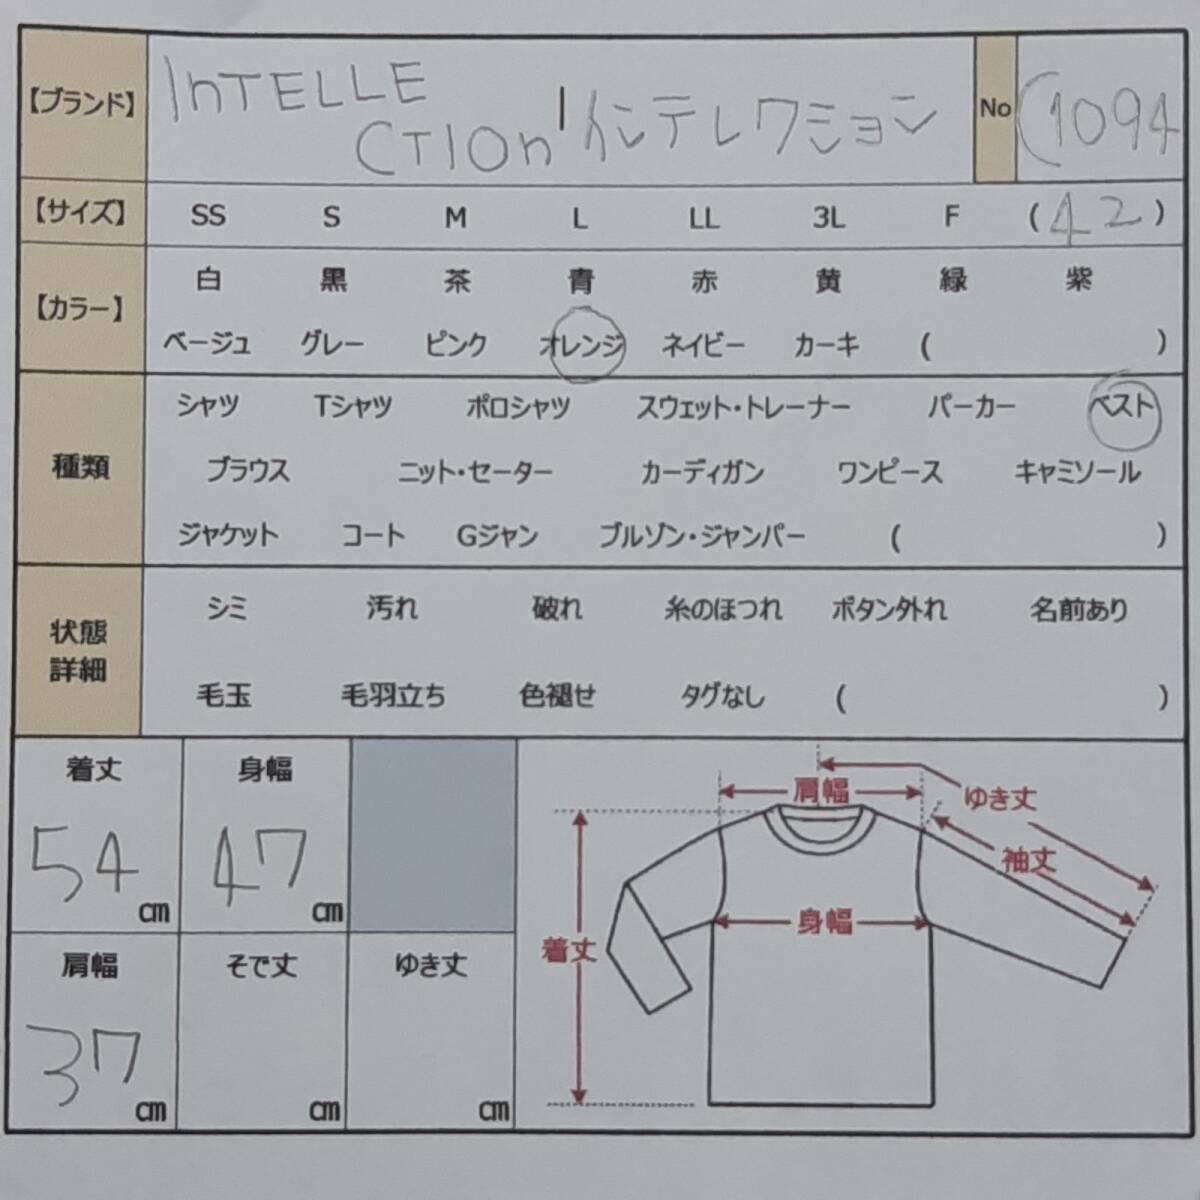 【ブランド】 InTELLE CTIOn' インテレクション No C1094
【サイズ】 SS S M L LL 3L F (42)
【カラー】 白 黒 茶 青 赤 黄 緑 紫
ベージュ グレー ピンク オレンジ ネイビー カーキ ( )
種類 シャツ Tシャツ ポロシャツ スウェット・トレーナー パーカー ベスト
ブラウス ニット・セーター カーディガン ワンピース キャミソール
ジャケット コート Gジャン ブルゾン・ジャンパー ( )
状態詳細 シミ 汚れ 破れ 糸のほつれ ボタン外れ 名前あり
毛玉 毛羽立ち 色褪せ タグなし ( )
着丈 身幅
54 cm 47 cm
肩幅 そで丈 ゆき丈
37 cm cm cm
肩幅 ゆき丈
袖丈
身幅
着丈